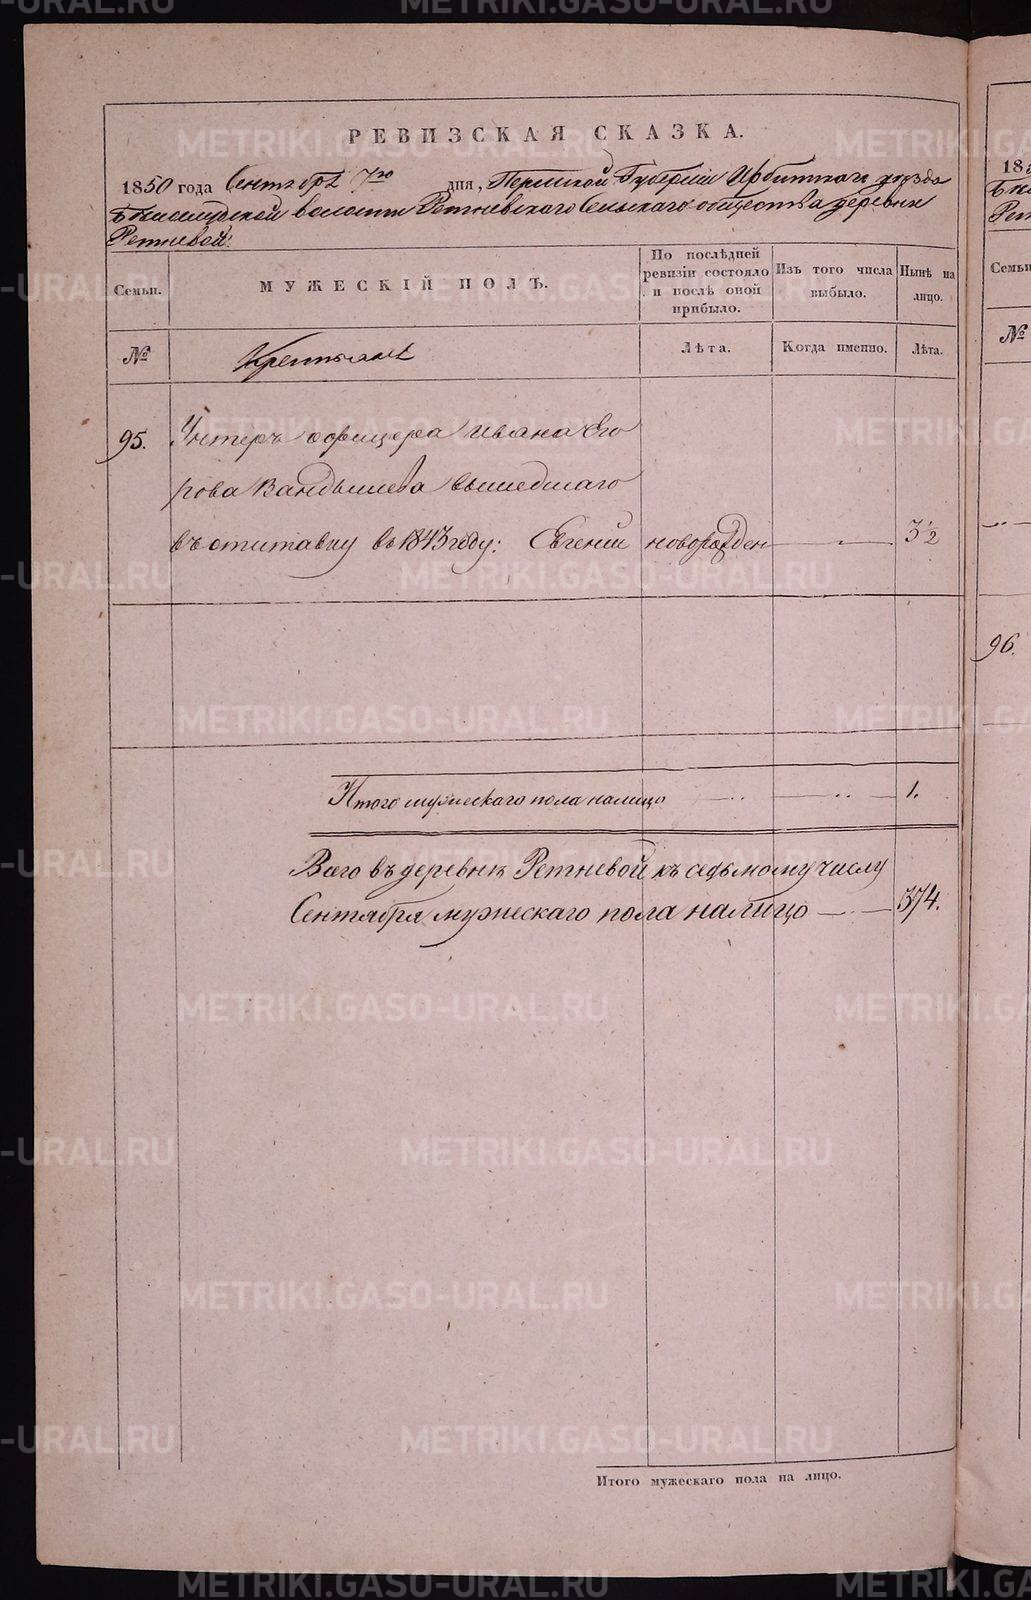 РЕВИЗСКАЯ СКАЗКА.
1850 года Сентября 7го дня, Пермской Губернiи Ирбитскаго уѣзда
волости Ретневскаго Сельскаго общества деревни
Ретневой:
Семьи.
МУЖЕСКIЙ ПОЛЪ.
По послѣдней ревизiи состояло и послѣ оной прибыло.
Изъ того числа выбыло.
Нынѣ на лицо.
№
Крестьяне
Лѣта.
Когда именно.
Лѣта.
95.
Унтеръ офицера Ивана Его
рова Вандышева вышедшаго
въ отставку въ 1843 году: Евгенiй новорожден 3½
Итого мужескаго пола налицо 1.
Всего въ деревнѣ Ретневой къ седьмому числу
Сентября мужескаго пола налицо 374.
Итого мужескаго пола на лицо.
18
Рет
Семьи
№
96.
METRIKI.GASO-URAL.RU